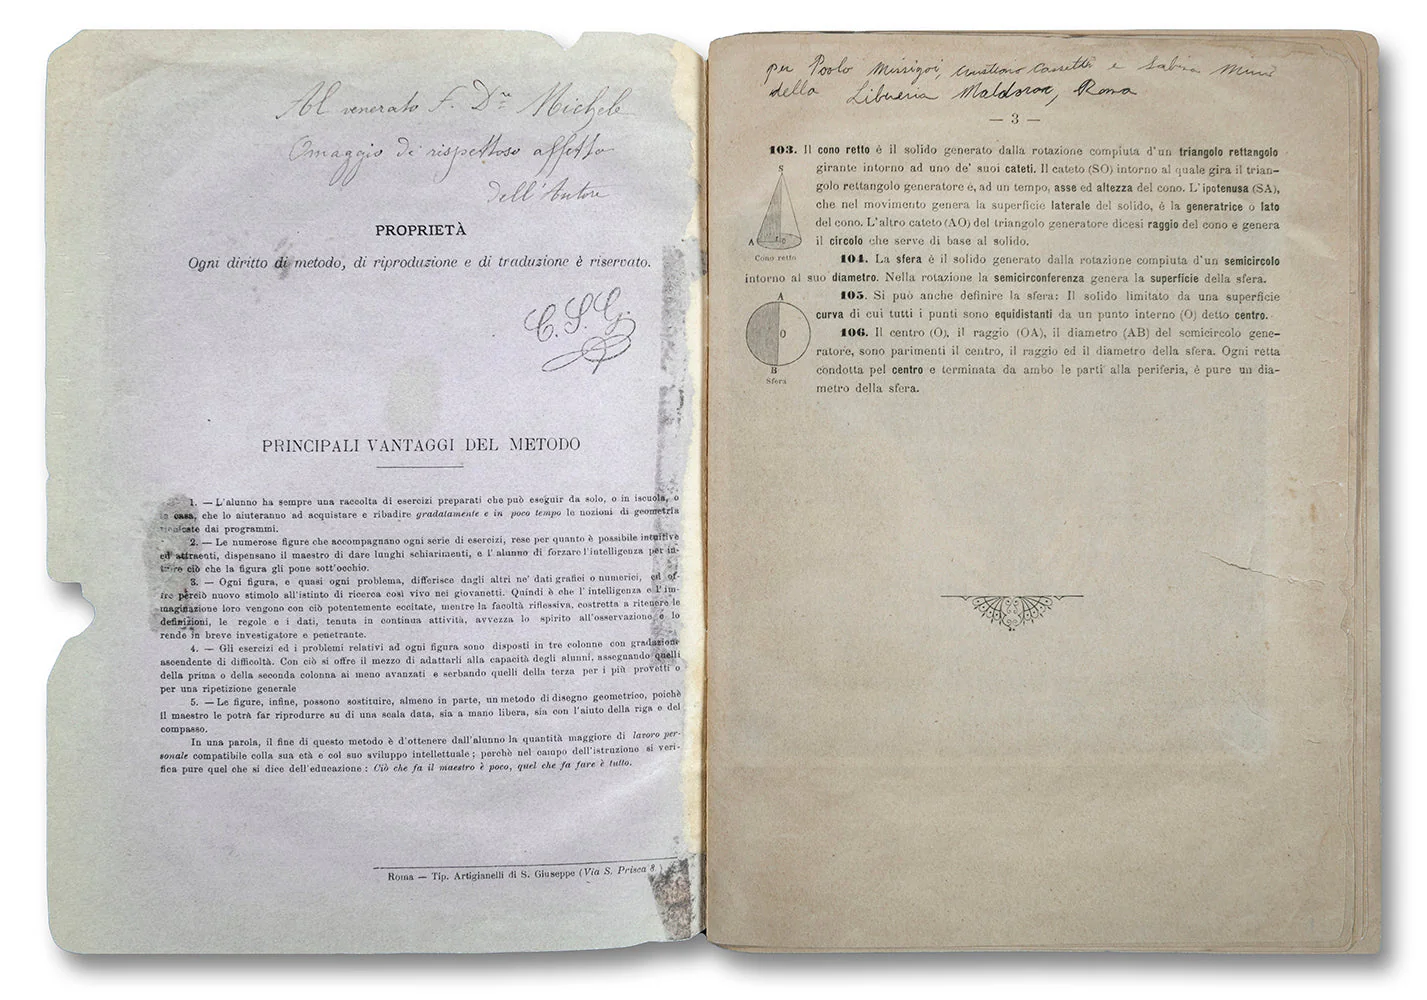 Al venerato F. D.re Michele
Omaggio di rispettoso affetto
dell'Autore
PROPRIETÀ
Ogni diritto di metodo, di riproduzione e di traduzione è riservato.
C. S. G.
PRINCIPALI VANTAGGI DEL METODO
1. — L'alunno ha sempre una raccolta di esercizi preparati che può eseguir da solo, o in iscuola, o
casa, che lo aiuteranno ad acquistare e ribadire gradatamente e in poco tempo le nozioni di geometria
dai programmi.
2. — Le numerose figure che accompagnano ogni serie di esercizi, rese per quanto è possibile intuitive
ed attraenti, dispensano il maestro di dare lunghi schiarimenti, e l'alunno di forzare l'intelligenza per in-
ciò che la figura gli pone sott'occhio.
3. — Ogni figura, e quasi ogni problema, differisce dagli altri ne' dati grafici o numerici, ed of-
fre perciò nuovo stimolo all'istinto di ricerca così vivo nei giovanetti. Quindi è che l'intelligenza e l'im-
maginazione loro vengono con ciò potentemente eccitate, mentre la facoltà riflessiva, costretta a ritenere le
definizioni, le regole e i dati, tenuta in continua attività, avvezza lo spirito all'osservazione e lo
rende in breve investigatore e penetrante.
4. — Gli esercizi ed i problemi relativi ad ogni figura sono disposti in tre colonne con gradazione
ascendente di difficoltà. Con ciò si offre il mezzo di adattarli alla capacità degli alunni, assegnando quelli
della prima o della seconda colonna ai meno avanzati e serbando quelli della terza per i più provetti o
per una ripetizione generale
5. — Le figure, infine, possono sostituire, almeno in parte, un metodo di disegno geometrico, poichè
il maestro le potrà far riprodurre su di una scala data, sia a mano libera, sia con l'aiuto della riga e del
compasso.
In una parola, il fine di questo metodo è d'ottenere dall'alunno la quantità maggiore di lavoro per-
sonale compatibile colla sua età e col suo sviluppo intellettuale; perchè nel campo dell'istruzione si veri-
fica pure quel che si dice dell'educazione: Ciò che fa il maestro è poco, quel che fa fare è tutto.
Roma — Tip. Artigianelli di S. Giuseppe (Via S. Prisca 8)
per Paolo Missigoi, Cristiano Cassetti e Sabina
della Libreria Maldoror, Roma
— 3 —
103. Il cono retto è il solido generato dalla rotazione compiuta d'un triangolo rettangolo
girante intorno ad uno de' suoi cateti. Il cateto (SO) intorno al quale gira il trian-
golo rettangolo generatore è, ad un tempo, asse ed altezza del cono. L'ipotenusa (SA),
che nel movimento genera la superficie laterale del solido, è la generatrice o lato
del cono. L'altro cateto (AO) del triangolo generatore dicesi raggio del cono e genera
il circolo che serve di base al solido.
S
A
Cono retto
104. La sfera è il solido generato dalla rotazione compiuta d'un semicircolo
intorno al suo diametro. Nella rotazione la semicirconferenza genera la superficie della sfera.
105. Si può anche definire la sfera: Il solido limitato da una superficie
curva di cui tutti i punti sono equidistanti da un punto interno (O) detto centro.
106. Il centro (O), il raggio (OA), il diametro (AB) del semicircolo gene-
ratore, sono parimenti il centro, il raggio ed il diametro della sfera. Ogni retta
condotta pel centro e terminata da ambo le parti alla periferia, è pure un dia-
metro della sfera.
A
O
B
Sfera